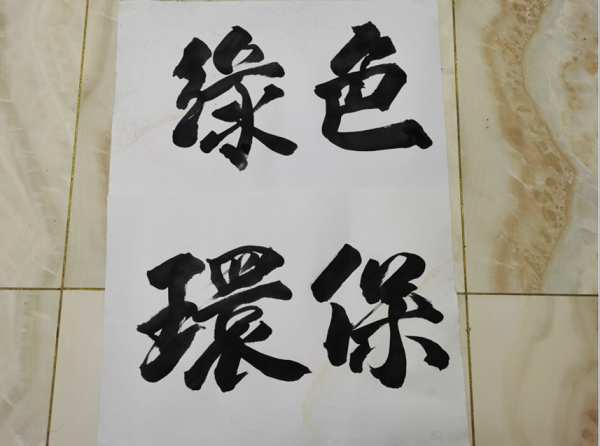 綠色
環保